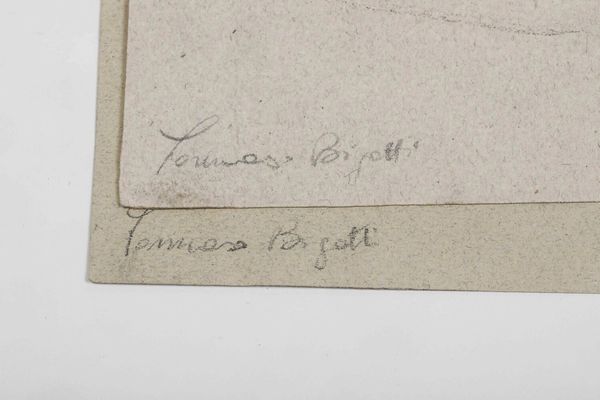 Tommaso Bigatti
Tommaso Bigatti